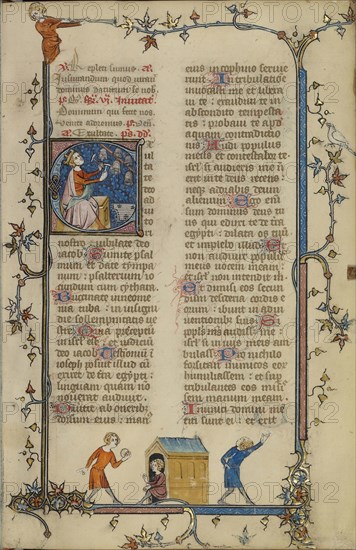 Repleti sumus
Iusiurandum quod iuravit
dominus daturum se nob
Dominum qui fecit nos
venite adoremus
Exultate
nostro iubilate deo
iacob Sumite psal
mum et date tympa
num psalterium io
cundum cum cythara
Bucinate in neome
nia tuba in insigni
die sollempnitatis ve
stre Quia preceptum
in isrl est et iudicium
deo iacob Testimonium i
ioseph posuit illud cu
exiret de terra egypti
linguam quam no
noverat audivit
Divertit ab oneribz
dorsum eius man
eius in cophino servie
runt In tribulatione
invocasti me et libera
vi te exaudivi te in
abscondito tempesta
tis probavi te apud
aquam contradictio
nis Audi populus
meus et contestabor te
isrl si audieris me no
erit in te deus recens
neque adorabis deum
alienum Ego enim
sum dominus deus tu
us qui eduxi te de tra
egypti dilata os tuu
et implebo illud Et
non audivit populus
meus vocem meam
et isrl non intendit m
Et dimisi eos secun
dum desideria cordis e
orum ibunt in adin
ventionibus suis Si
popls ms audisset me
isrl si in viis meis am
bulasset Pro nichilo
forsitan inimicos eor
humiliassem et sup
tribulantes eos misis
sem manum meam
Inimici domini me
titi sunt ei et erit